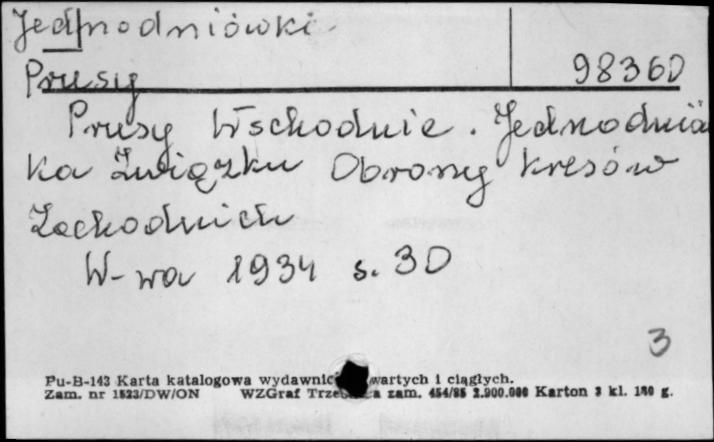 Jednodniówki
98360
Prusy
Prusy Wschodnie. Jednodniów
ka Związku Obrony Kresów
Zachodnich
W-wa 1934 s. 30
3
Pu-B-143 Karta katalogowa wydawnic wartych i ciągłych.
Zam. nr 1523/DW/ON WZGraf zam. 454/85 2.900.000 Karton 3 kl. 180 g.